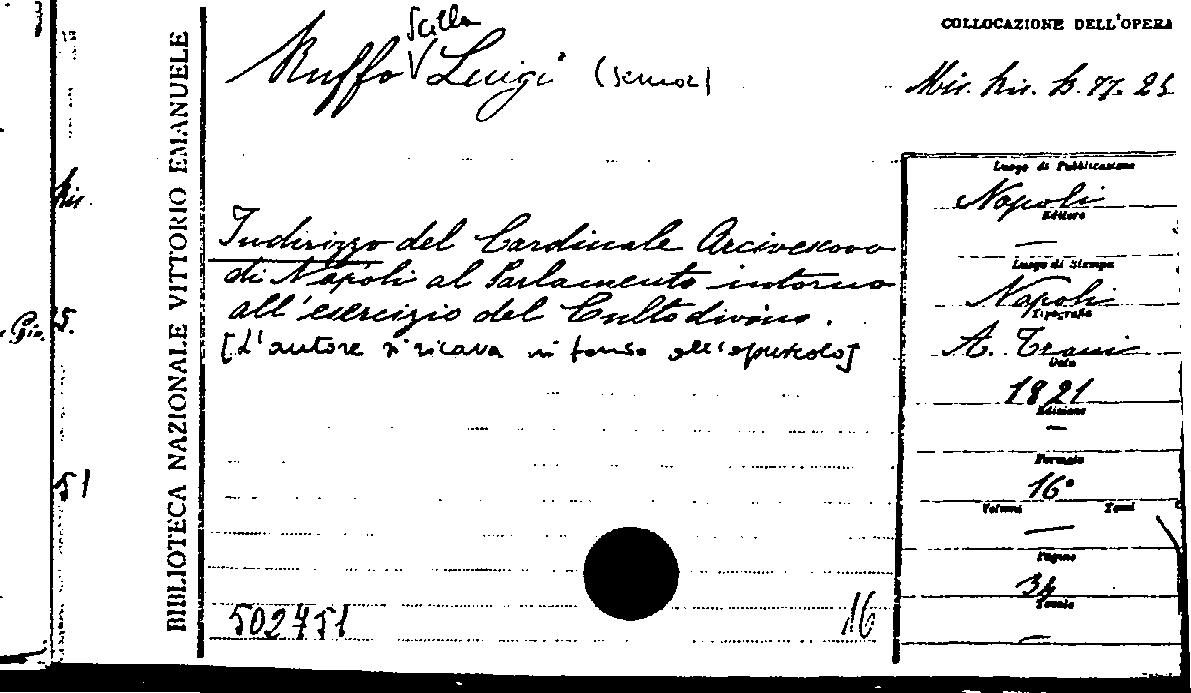 COLLOCAZIONE DELL'OPERA
Scilla
Ruffo Luigi
Mis. Ris. B. 77. 25
BIBLIOTECA NAZIONALE VITTORIO EMANUELE
Indirizzo del Cardinale Arcivescovo
di Napoli al Parlamento intorno
all'esercizio del Culto divino.
[L'autore si ricava in fondo all'opuscolo]
Luogo di Pubblicazione
Napoli
Editore
—
Luogo di Stampa
Napoli
Tipografia
A. Trani
Data
1821
Edizione
—
Formato
16°
Volume Tomi
—
Pagine
34
Tavole
—
502751
16
Ris.
. Gio.
5.
51